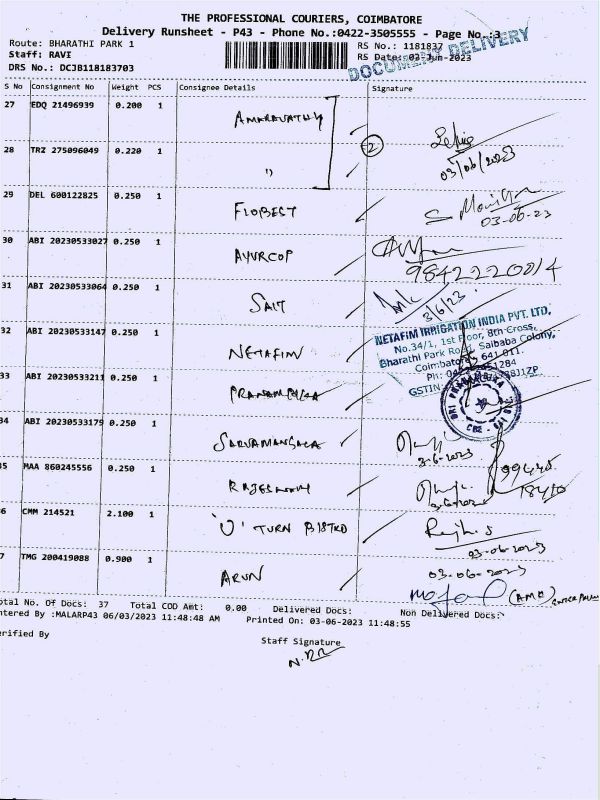 THE PROFESSIONAL COURIERS, COIMBATORE
Delivery Runsheet - P43 - Phone No.:0422-3505555 - Page No.:3
Route: BHARATHI PARK 1
RS No.: 1181837
Staff: RAVI
RS Date: 03-Jun-2023
DOCUMENT DELIVERY
DRS No.: DCJB118183703
S No Consignment No Weight PCS Consignee Details Signature
27 EDQ 21496939 0.200 1 AMARAVATHY
28 TRZ 275096049 0.220 1 "
2
03/06/2023
29 DEL 600122825 0.250 1 FLOBEST
03-06-23
30 ABI 20230533027 0.250 1 AYURCOP
9842220014
31 ABI 20230533064 0.250 1 SAIT
3/6/23
32 ABI 20230533147 0.250 1 NETAFIM
NETAFIM IRRIGATION INDIA PVT. LTD,
No.34/1, 1st Floor, 8th Cross,
Bharathi Park Road, Saibaba Colony,
Coimbatore - 641 011.
Ph:
GSTIN:
33 ABI 20230533211 0.250 1
34 ABI 20230533179 0.250 1 SARVAMANGALA
3-6-2023
35 MAA 860245556 0.250 1 RAJESWARI
36 CMM 214521 2.100 1 'U' TURN BISTRO
03-06-2023
37 TMG 200419088 0.900 1 ARUN
03-06-2023
Total No. Of Docs: 37 Total COD Amt: 0.00 Delivered Docs: Non Delivered Docs:
Entered By :MALARP43 06/03/2023 11:48:48 AM Printed On: 03-06-2023 11:48:55
Verified By
Staff Signature